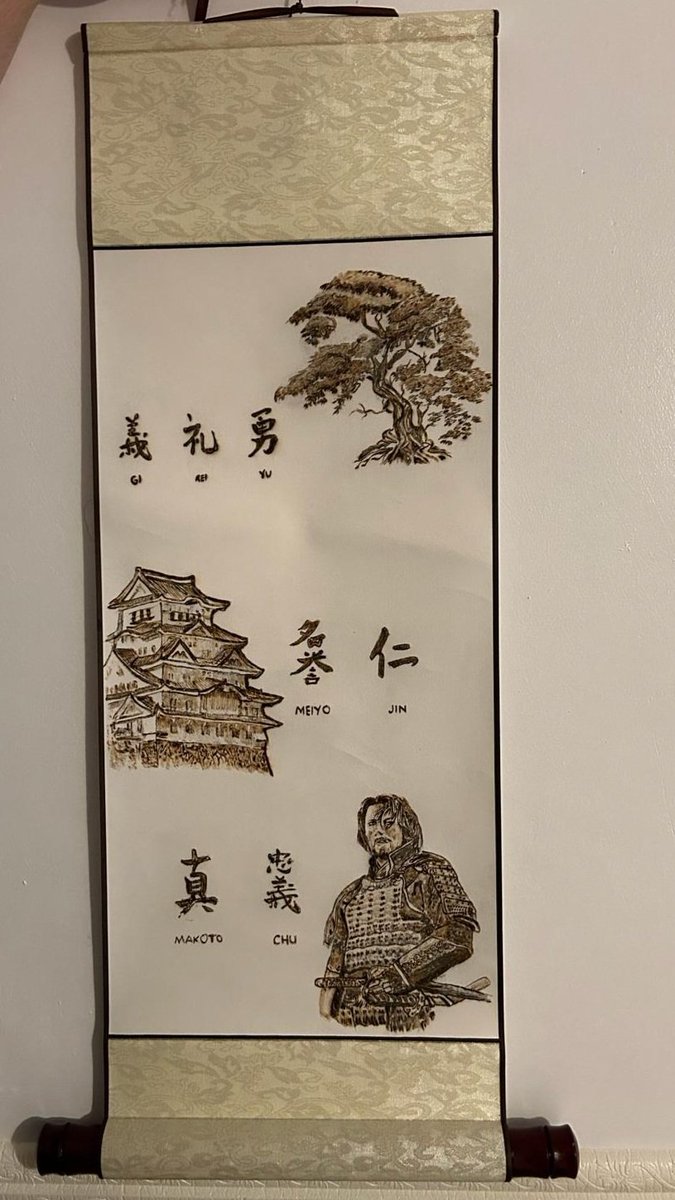 義 礼 勇
GI REI YU
名誉 仁
MEIYO JIN
真 忠義
MAKOTO CHU